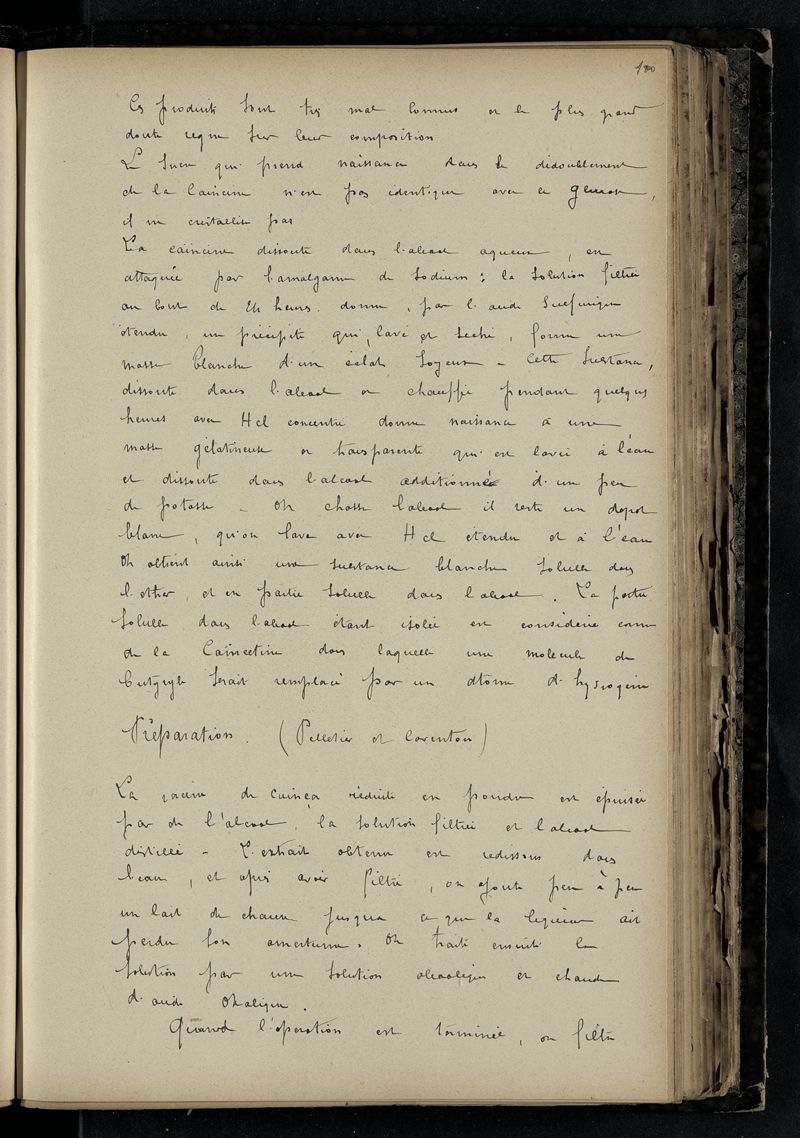 180
Ces produits sont très mal connus et le plus grand
doute règne sur leur composition
Le sucre qui prend naissance dans le dédoublement
de la Caïncine n'est pas identique avec le glucose,
il ne cristallise pas
La Caïncine dissoute dans l'alcool aqueux, est
attaquée par l'amalgame de sodium ; la solution filtrée
au bout de 24 heures donne, par l'acide sulfurique
étendu, un précipité qui, lavé et séché, forme une
masse blanche d'un éclat soyeux – Cette substance,
dissoute dans l'alcool et chauffée pendant quelques
heures avec HCl concentré donne naissance à une
masse gélatineuse et transparente qui est lavée à l'eau
et dissoute dans l'alcool additionnée d'un peu
de potasse – On chasse l'alcool il reste un dépôt
blanc, qu'on lave avec HCl étendu et à l'eau
On obtient ainsi une substance blanche soluble dans
l'éther, et en partie soluble dans l'alcool. La partie
soluble dans l'alcool étant isolée est considérée comme
de la Caïncétine dans laquelle une molécule de
butyryle serait remplacé par un atome d'hydrogène
Préparation. (Pelletier et Caventou)
La racine de Caïnça réduite en poudre est épuisée
par de l'alcool, la solution filtrée et l'alcool
distillé – L'extrait obtenu est redissous dans
l'eau, et après avoir filtré, on ajoute peu à peu
un lait de chaux jusqu'à ce que la liqueur ait
perdu son amertume. On traite ensuite la
solution par une solution alcoolique et chaude
d'acide oxalique.
Quand l'opération est terminée, on filtre